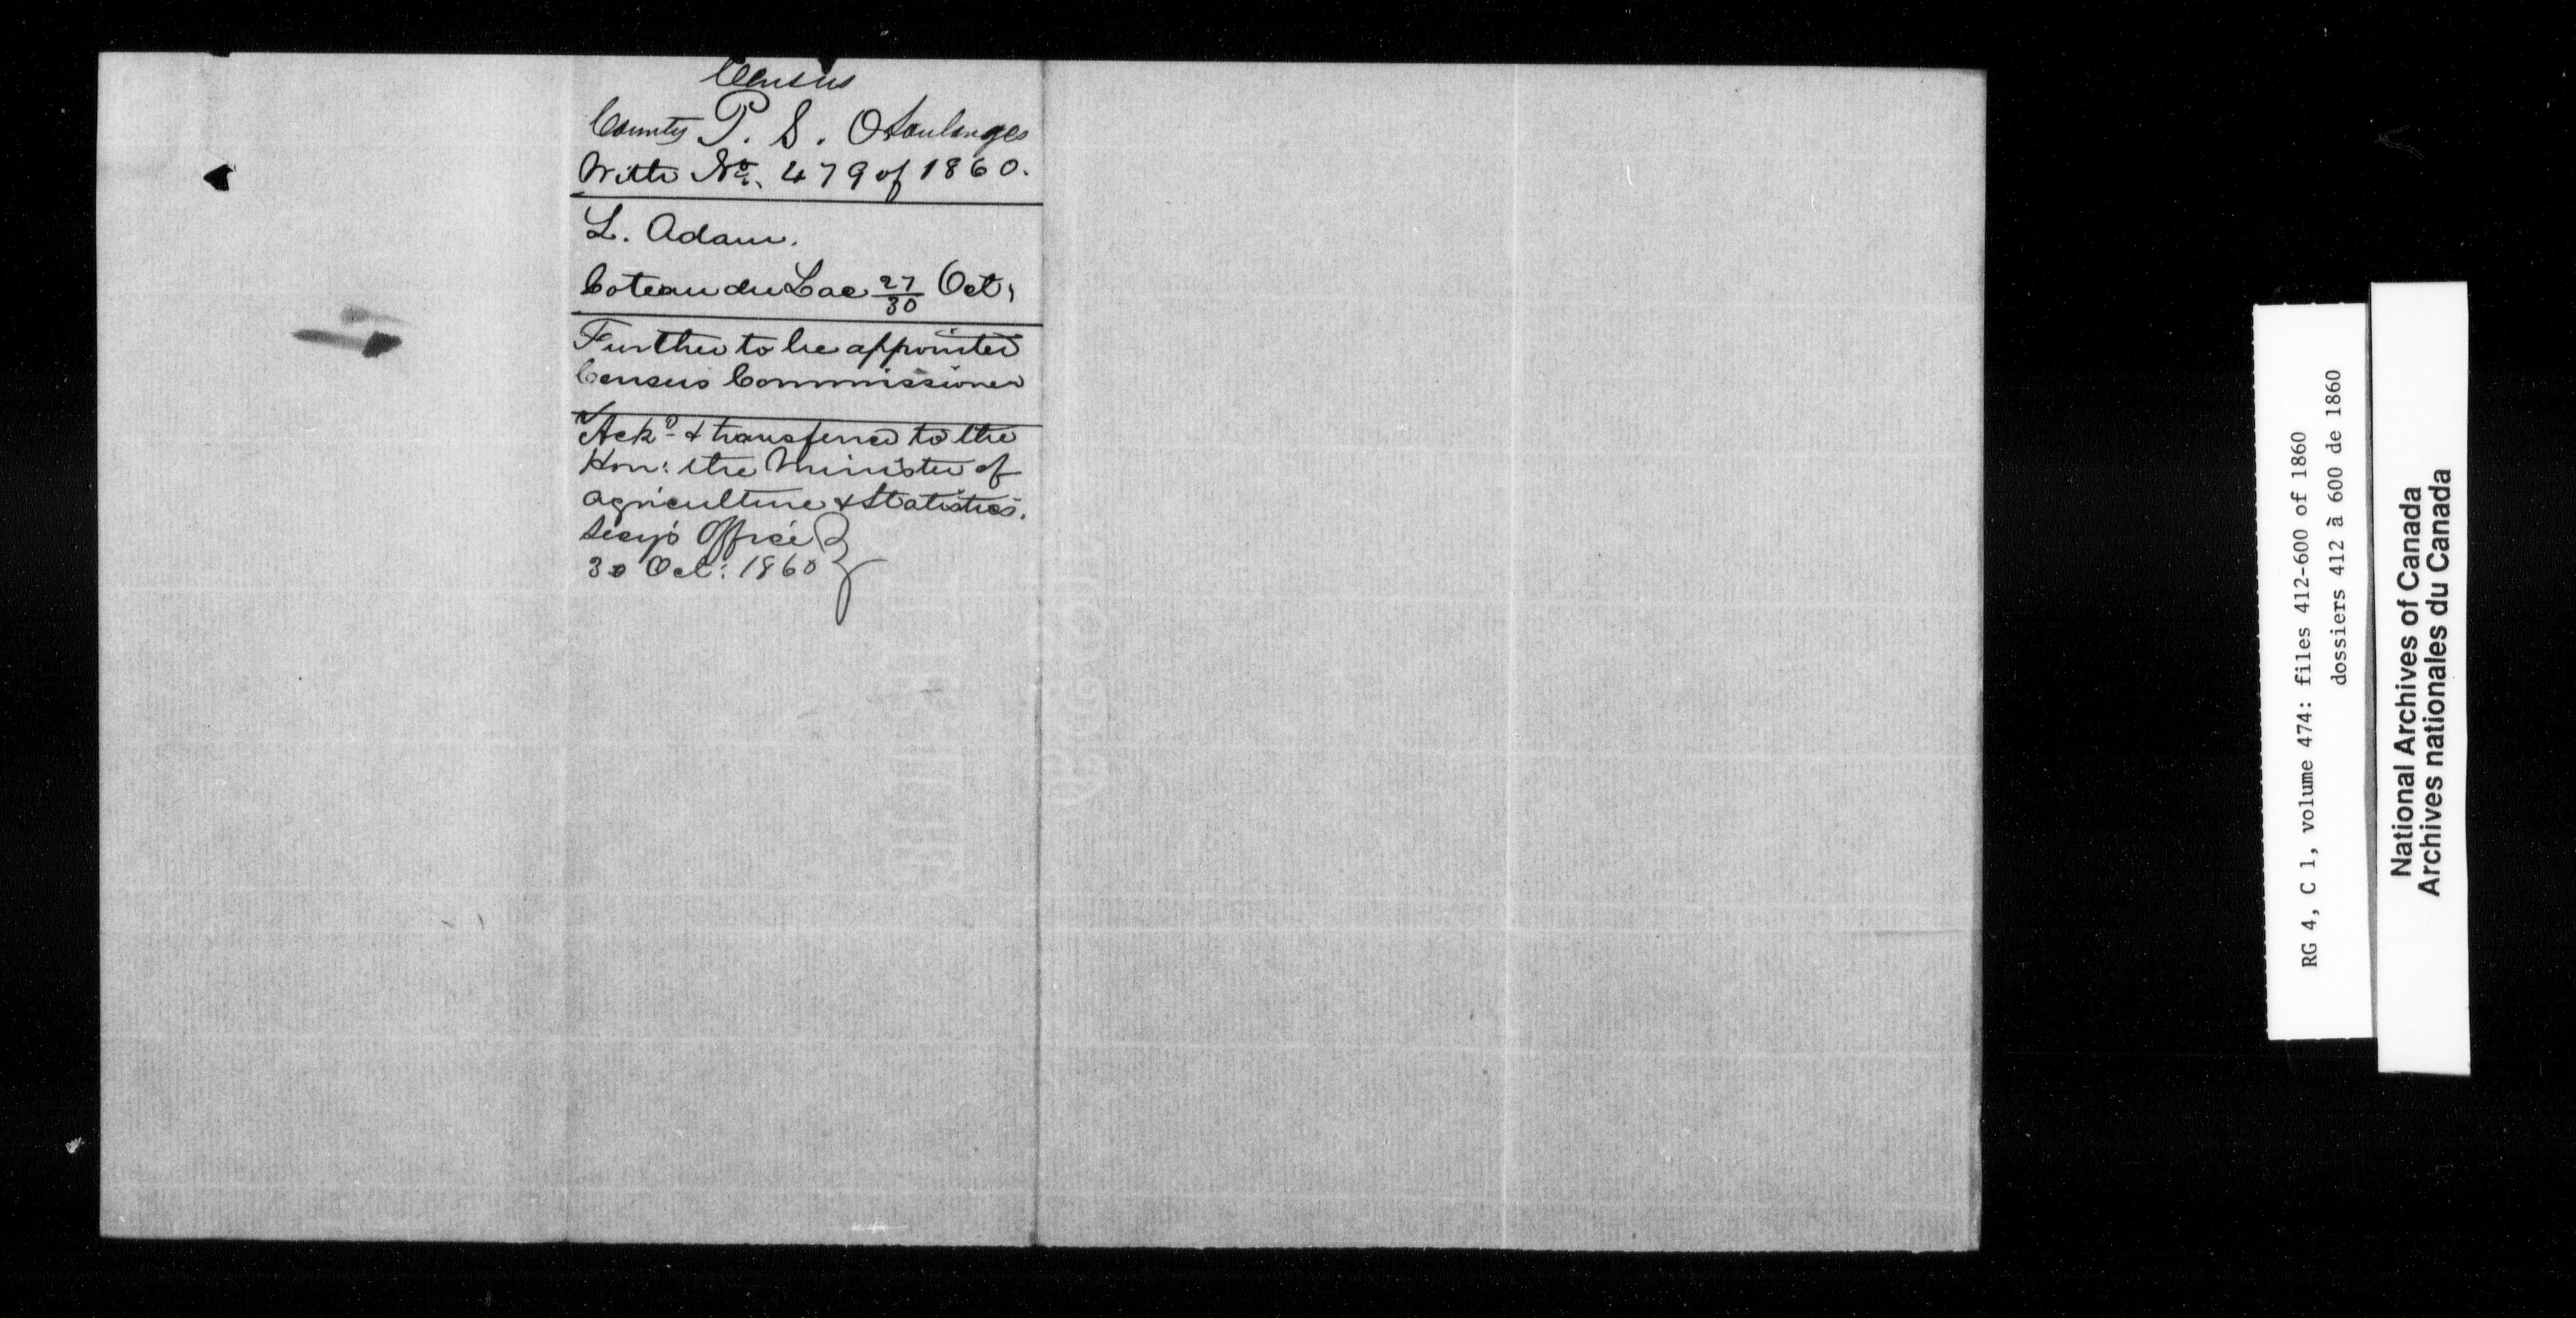 Census
County P. S. O Soulanges
With No. 479 of 1860.
L. Adam.
Coteau du Lac 27/30 Oct,
Further to be appointed
Census Commissioner
Ackd & transferred to the
Hon: the Minister of
Agriculture & Statistics.
Secy's Office
30 Oct: 1860
RG 4, C 1, volume 474: files 412-600 of 1860
dossiers 412 à 600 de 1860
National Archives of Canada
Archives nationales du Canada